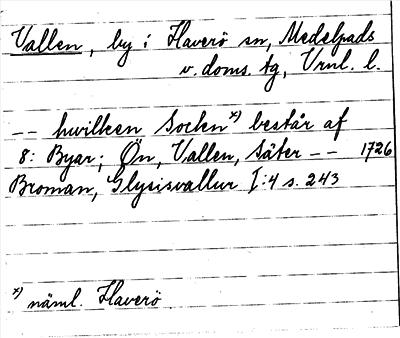 Vallen, by i Haverö sn, Medelpads
v. doms. tg, Vrnl. l.
-- hwilken Socken x) består af
8: Byar; Ön, Vallen, Säter -- 1726
Broman, Glysisvallur I:4 s. 243
x) näml. Haverö